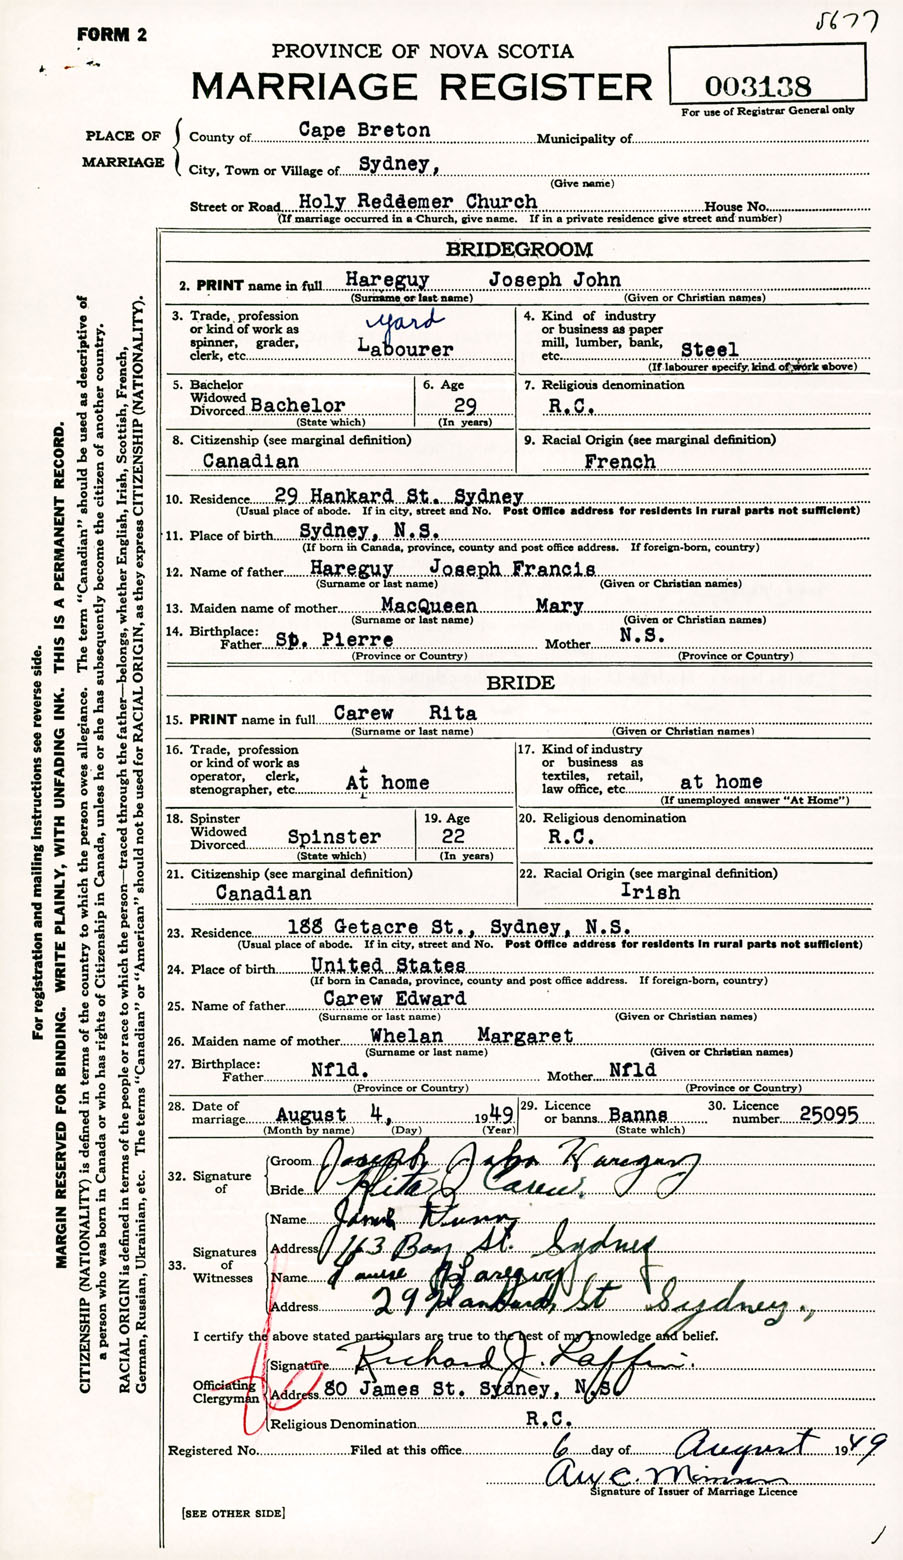 5677
FORM 2
PROVINCE OF NOVA SCOTIA
MARRIAGE REGISTER
003138
For use of Registrar General only
PLACE OF MARRIAGE
County of Cape Breton Municipality of
City, Town or Village of Sydney,
(Give name)
Street or Road Holy Reddemer Church House No.
(If marriage occurred in a Church, give name. If in a private residence give street and number)
BRIDEGROOM
2. PRINT name in full Hareguy Joseph John
(Surname or last name) (Given or Christian names)
3. Trade, profession or kind of work as spinner, grader, clerk, etc. yard Labourer
4. Kind of industry or business as paper mill, lumber, bank, etc. Steel
(If labourer specify kind of work above)
5. Bachelor Widowed Divorced Bachelor
(State which)
6. Age 29
(In years)
7. Religious denomination R.C.
8. Citizenship (see marginal definition) Canadian
9. Racial Origin (see marginal definition) French
10. Residence 29 Hankard St. Sydney
(Usual place of abode. If in city, street and No. Post Office address for residents in rural parts not sufficient)
11. Place of birth Sydney, N.S.
(If born in Canada, province, county and post office address. If foreign-born, country)
12. Name of father Hareguy Joseph Francis
(Surname or last name) (Given or Christian names)
13. Maiden name of mother MacQueen Mary
(Surname or last name) (Given or Christian names)
14. Birthplace: Father St. Pierre Mother N.S.
(Province or Country) (Province or Country)
BRIDE
15. PRINT name in full Carew Rita
(Surname or last name) (Given or Christian names)
16. Trade, profession or kind of work as operator, clerk, stenographer, etc. At home
17. Kind of industry or business as textiles, retail, law office, etc. at home
(If unemployed answer "At Home")
18. Spinster Widowed Divorced Spinster
(State which)
19. Age 22
(In years)
20. Religious denomination R.C.
21. Citizenship (see marginal definition) Canadian
22. Racial Origin (see marginal definition) Irish
23. Residence 188 Getacre St., Sydney, N.S.
(Usual place of abode. If in city, street and No. Post Office address for residents in rural parts not sufficient)
24. Place of birth United States
(If born in Canada, province, county and post office address. If foreign-born, country)
25. Name of father Carew Edward
(Surname or last name) (Given or Christian names)
26. Maiden name of mother Whelan Margaret
(Surname or last name) (Given or Christian names)
27. Birthplace: Father Nfld. Mother Nfld
(Province or Country) (Province or Country)
28. Date of marriage August 4, 1949
(Month by name) (Day) (Year)
29. Licence or banns Banns
(State which)
30. Licence number 25095
32. Signature of
Groom Joseph John Hareguy
Bride Rita Carew.
33. Signatures of Witnesses
Name Dunn
Address 163 Bay St. Sydney
Name Louise Hareguy
Address 29 Hankard St Sydney.,
I certify the above stated particulars are true to the best of my knowledge and belief.
Officiating Clergyman
Signature Richard J. Laffin.
Address 80 James St. Sydney, N.S.
Religious Denomination R.C.
Registered No. Filed at this office 6 day of August 1949
Signature of Issuer of Marriage Licence
[SEE OTHER SIDE]
For registration and mailing instructions see reverse side.
MARGIN RESERVED FOR BINDING. WRITE PLAINLY, WITH UNFADING INK. THIS IS A PERMANENT RECORD.
CITIZENSHIP (NATIONALITY) is defined in terms of the country to which the person owes allegiance. The term "Canadian" should be used as descriptive of
a person who was born in Canada or who has rights of Citizenship in Canada, unless he or she has subsequently become the citizen of another country.
RACIAL ORIGIN is defined in terms of the people or race to which the person—traced through the father—belongs, whether English, Irish, Scottish, French,
German, Russian, Ukrainian, etc. The terms "Canadian" or "American" should not be used for RACIAL ORIGIN, as they express CITIZENSHIP (NATIONALITY).